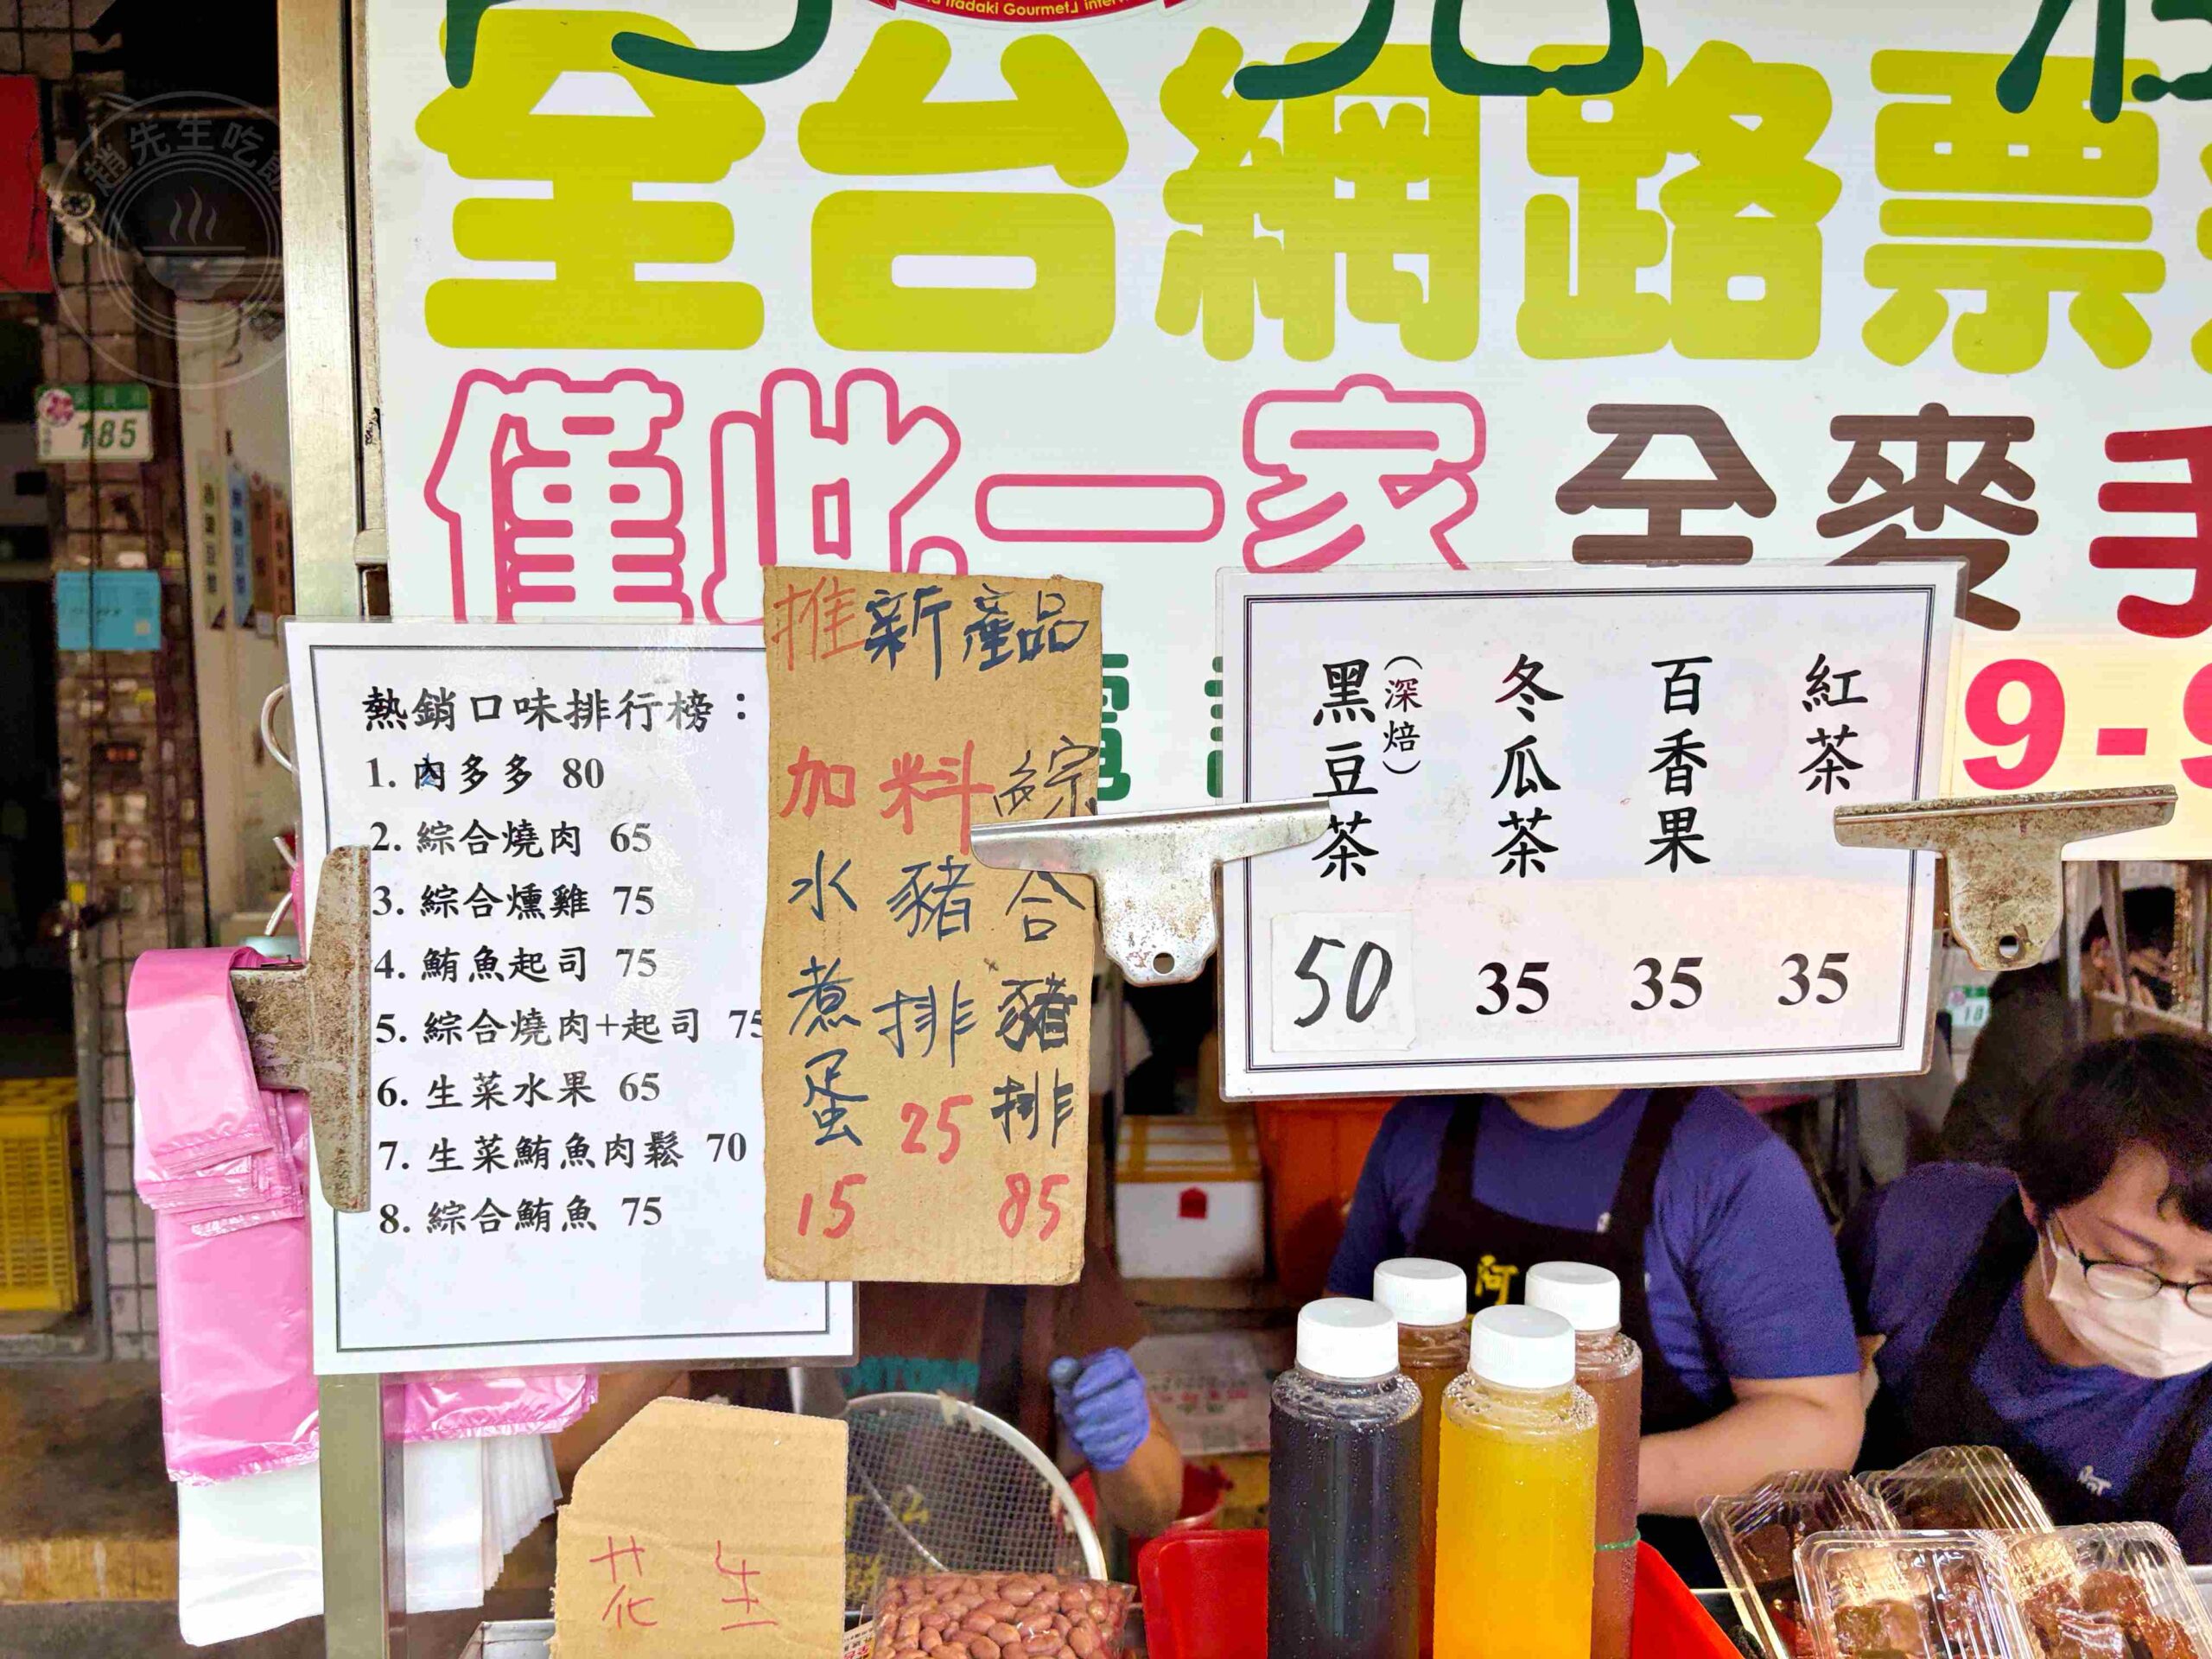 趙先生吃
Itadaki Gourmet」
全台網路票
僅此一家 全麥手
185
9-9
熱銷口味排行榜：
1. 肉多多 80
2. 綜合燒肉 65
3. 綜合燻雞 75
4. 鮪魚起司 75
5. 綜合燒肉+起司 75
6. 生菜水果 65
7. 生菜鮪魚肉鬆 70
8. 綜合鮪魚 75
推新產品
綜合豬排 85
加料
豬排 25
水煮蛋 15
紅茶 35
百香果 35
冬瓜茶 35
黑豆茶（深焙） 50
花生
阿